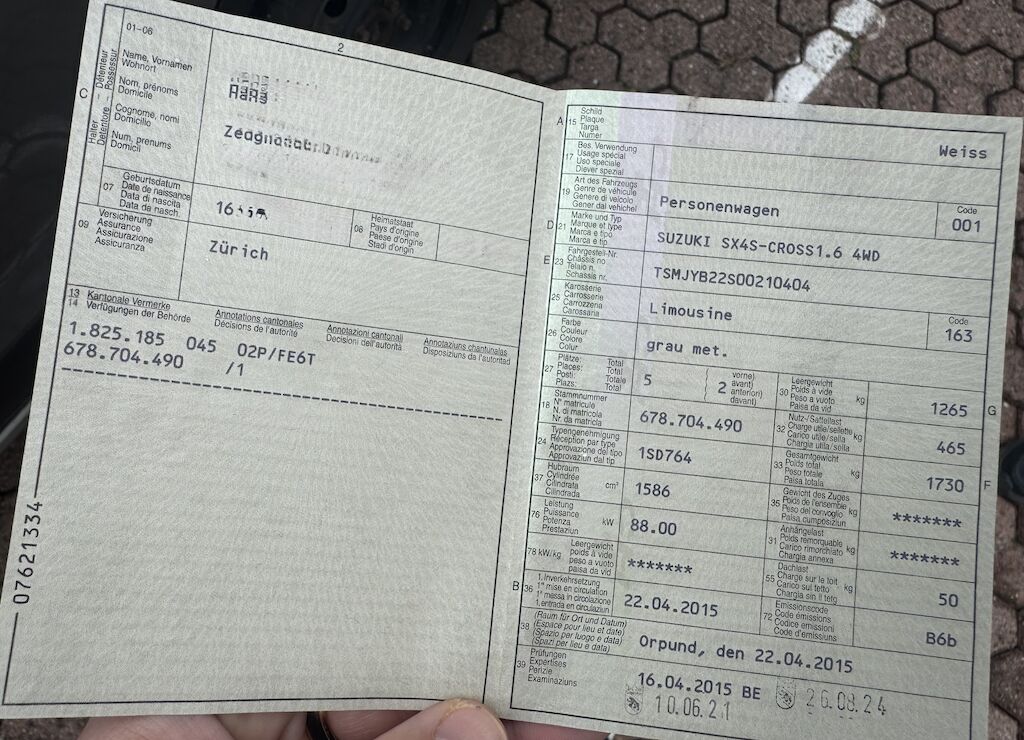 2
01-06
C
Halter Détenteur
Detentore Possessur
Name, Vornamen
Wohnort
Nom, prénoms
Domicile
Cognome, nomi
Domicilio
Num, prenums
Domicil
07
Geburtsdatum
Date de naissance
Data di nascita
Data da nasch.
16
08
Heimatstaat
Pays d'origine
Paese d'origine
Stadi d'origin
09
Versicherung
Assurance
Assicurazione
Assicuranza
Zürich
13
14
Kantonale Vermerke
Verfügungen der Behörde
Annotations cantonales
Décisions de l'autorité
Annotazioni cantonali
Decisioni dell'autorità
Annotaziuns chantunalas
Disposiziuns da l'autoritad
1.825.185 045 02P/FE6T
678.704.490 /1
07621334
A 15
Schild
Plaque
Targa
Numer
Weiss
17
Bes. Verwendung
Usage spécial
Uso speciale
Diever spezial
19
Art des Fahrzeugs
Genre de véhicule
Genere di veicolo
Gener dal vehichel
Personenwagen
Code
001
D 21
Marke und Typ
Marque et type
Marca e tipo
Marca e tip
SUZUKI SX4S-CROSS1.6 4WD
E 23
Fahrgestell-Nr.
Châssis no
Telaio n.
Schassis nr.
TSMJYB22S00210404
25
Karosserie
Carrosserie
Carrozzeria
Carossaria
Limousine
Code
163
26
Farbe
Couleur
Colore
Colur
grau met.
27
Plätze: Total
Places: Total
Posti: Totale
Plazs: Total
5
2
vorne)
avant)
anteriori)
davant)
30
Leergewicht
Poids à vide
Peso a vuoto
Paisa da vid
kg
1265
G
18
Stammnummer
N° matricule
N. di matricola
Nr. da matricla
678.704.490
32
Nutz-/Sattellast
Charge utile/sellette
Carico utile/sella
Chargia utila/sella
kg
465
24
Typengenehmigung
Réception par type
Approvazione del tipo
Approvaziun dal tip
1SD764
33
Gesamtgewicht
Poids total
Peso totale
Paisa totala
kg
1730
F
37
Hubraum
Cylindrée
Cilindrata
Cilindrada
cm³
1586
35
Gewicht des Zuges
Poids de l'ensemble
Peso del convoglio
Paisa cumposiziun
kg
*******
76
Leistung
Puissance
Potenza
Prestaziun
kW
88.00
31
Anhängelast
Poids remorquable
Carico rimorchiato
Chargia annexa
kg
*******
78 kW/kg
Leergewicht
poids à vide
peso a vuoto
paisa da vid
*******
55
Dachlast
Charge sur le toit
Carico sul tetto
Chargia sin il tetg
kg
50
B 36
1. Inverkehrsetzung
1re mise en circulation
1a messa in circolazione
1. entrada en circulaziun
22.04.2015
72
Emissionscode
Code émissions
Codice emissioni
Code d'emissiuns
B6b
38
(Raum für Ort und Datum)
(Espace pour lieu et date)
(Spazio per luogo e data)
(Spazi per lieu e data)
Orpund, den 22.04.2015
39
Prüfungen
Expertises
Perizie
Examinaziuns
16.04.2015 BE
10.06.21
26.08.24